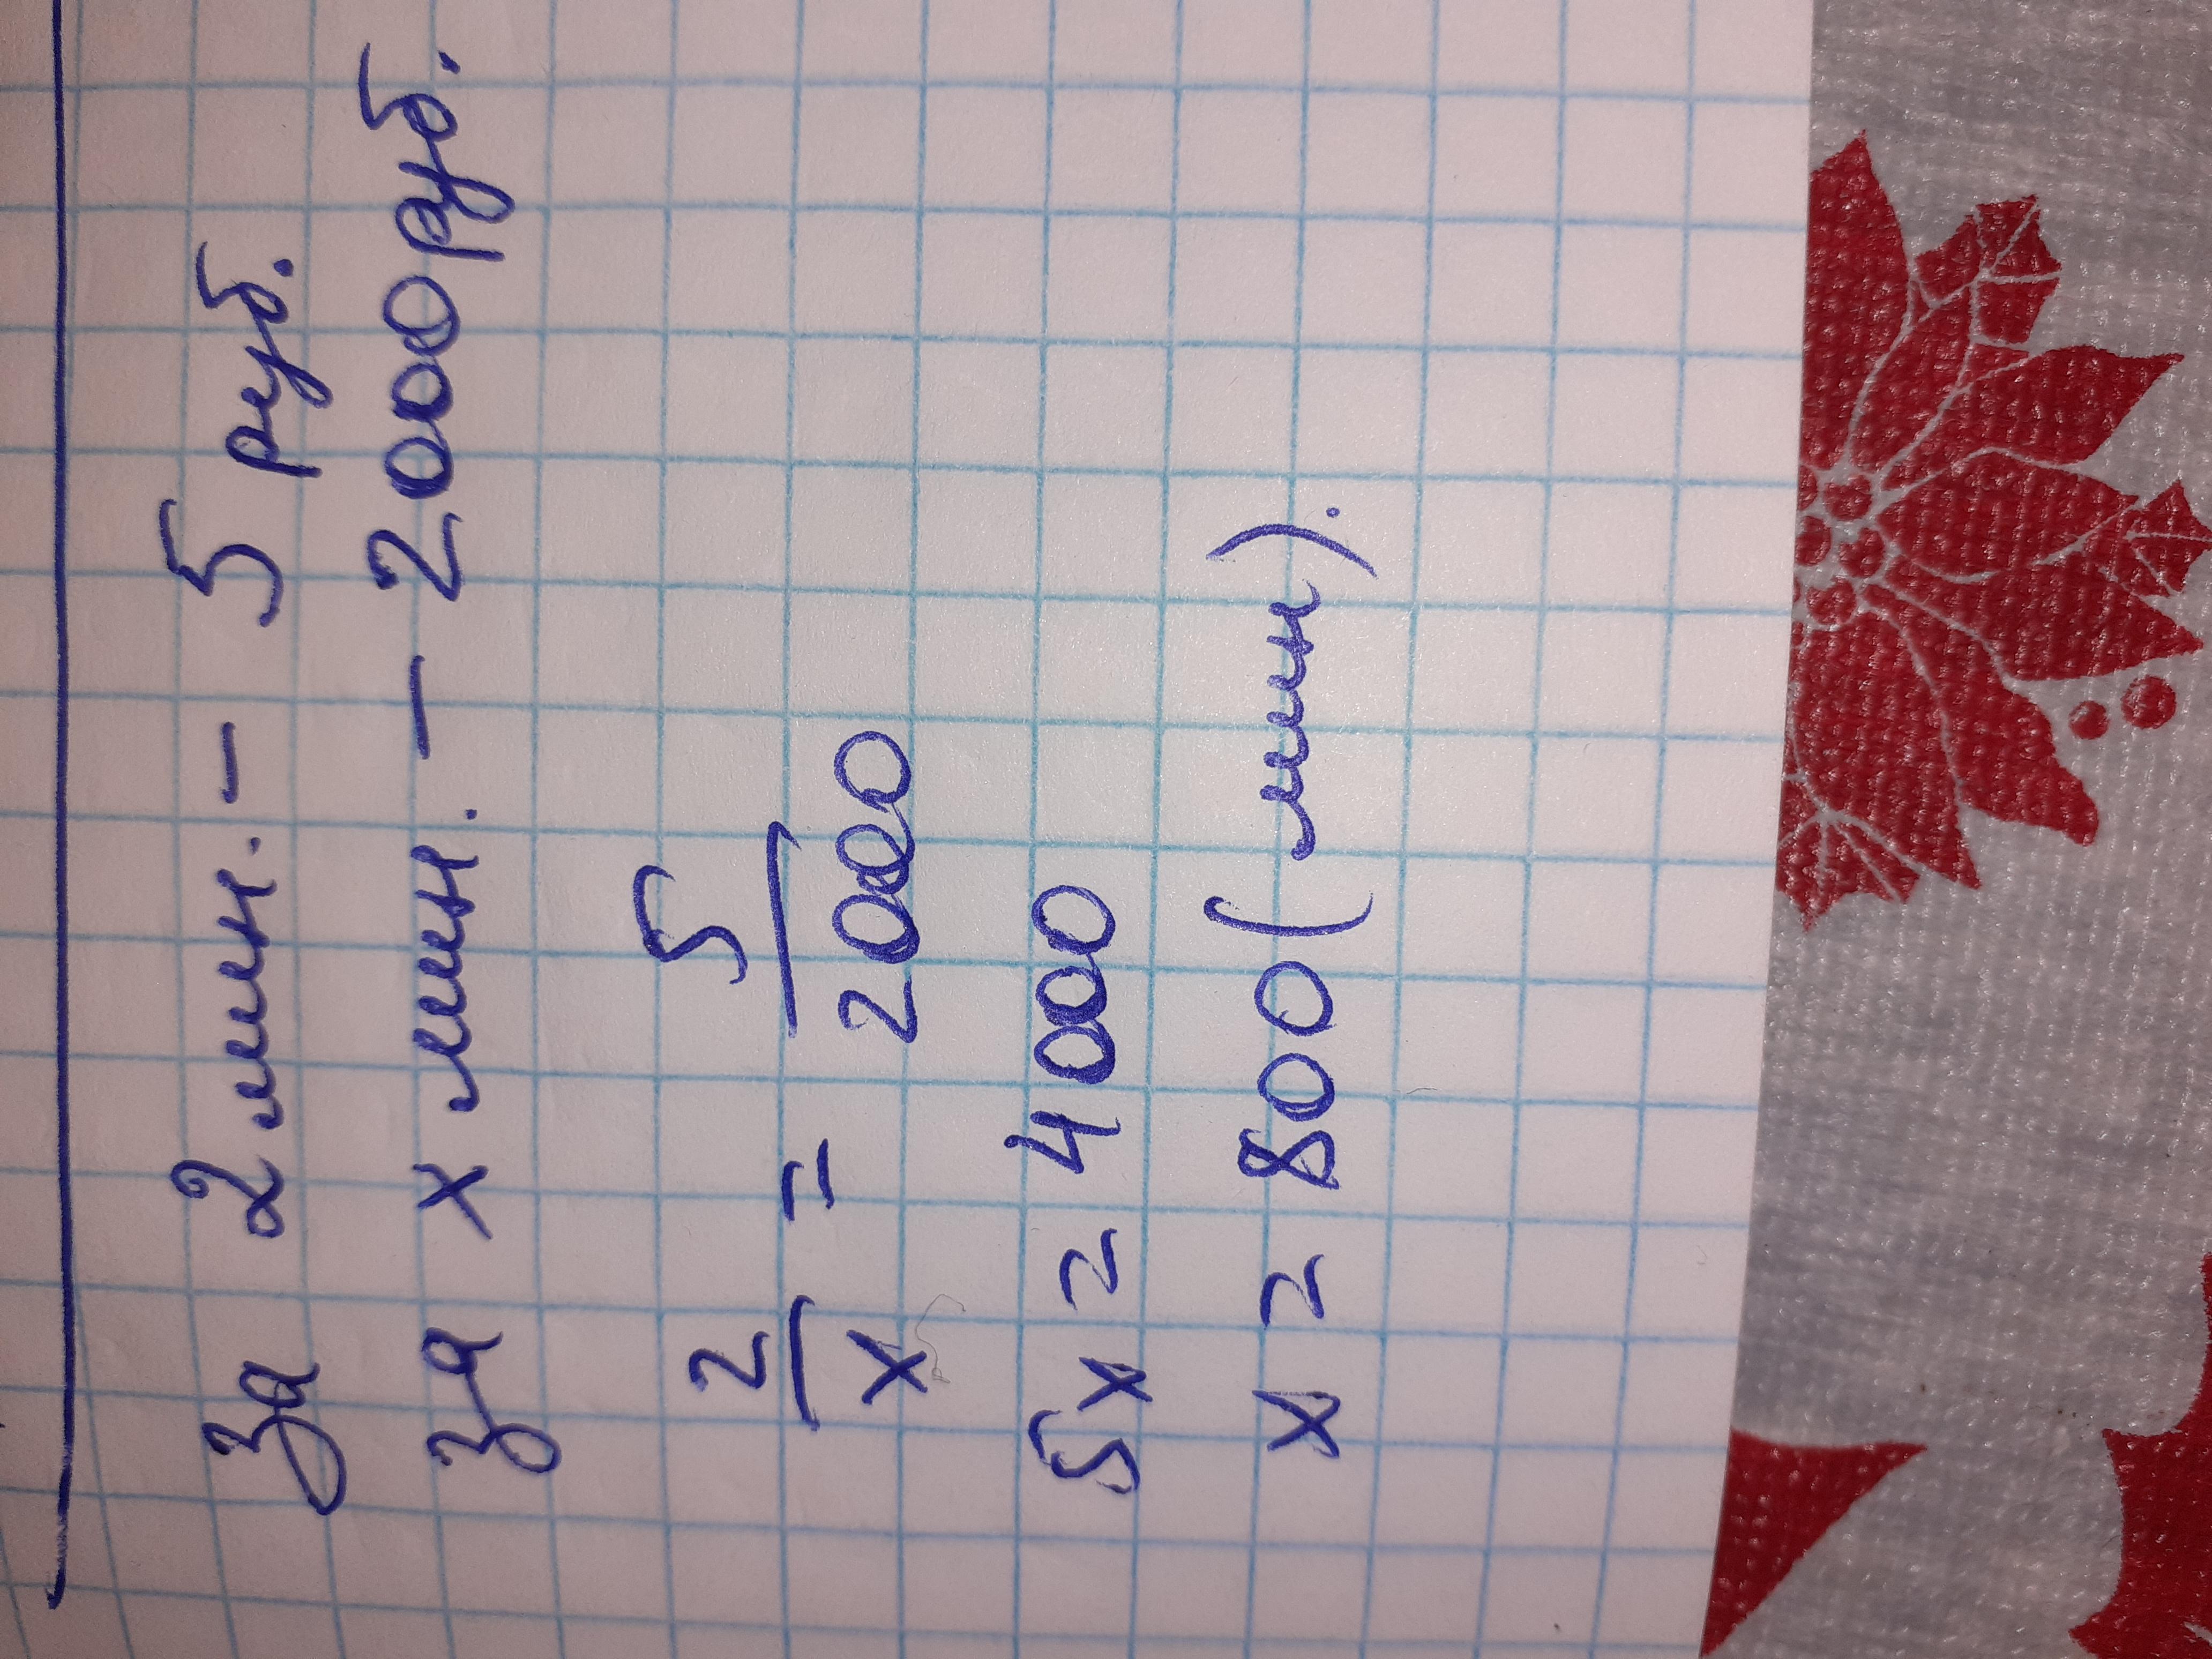 за 2 мин. - 5 руб.
за x мин. - 2000 руб.
2/x = 5/2000
5x = 4000
x = 800 (мин).